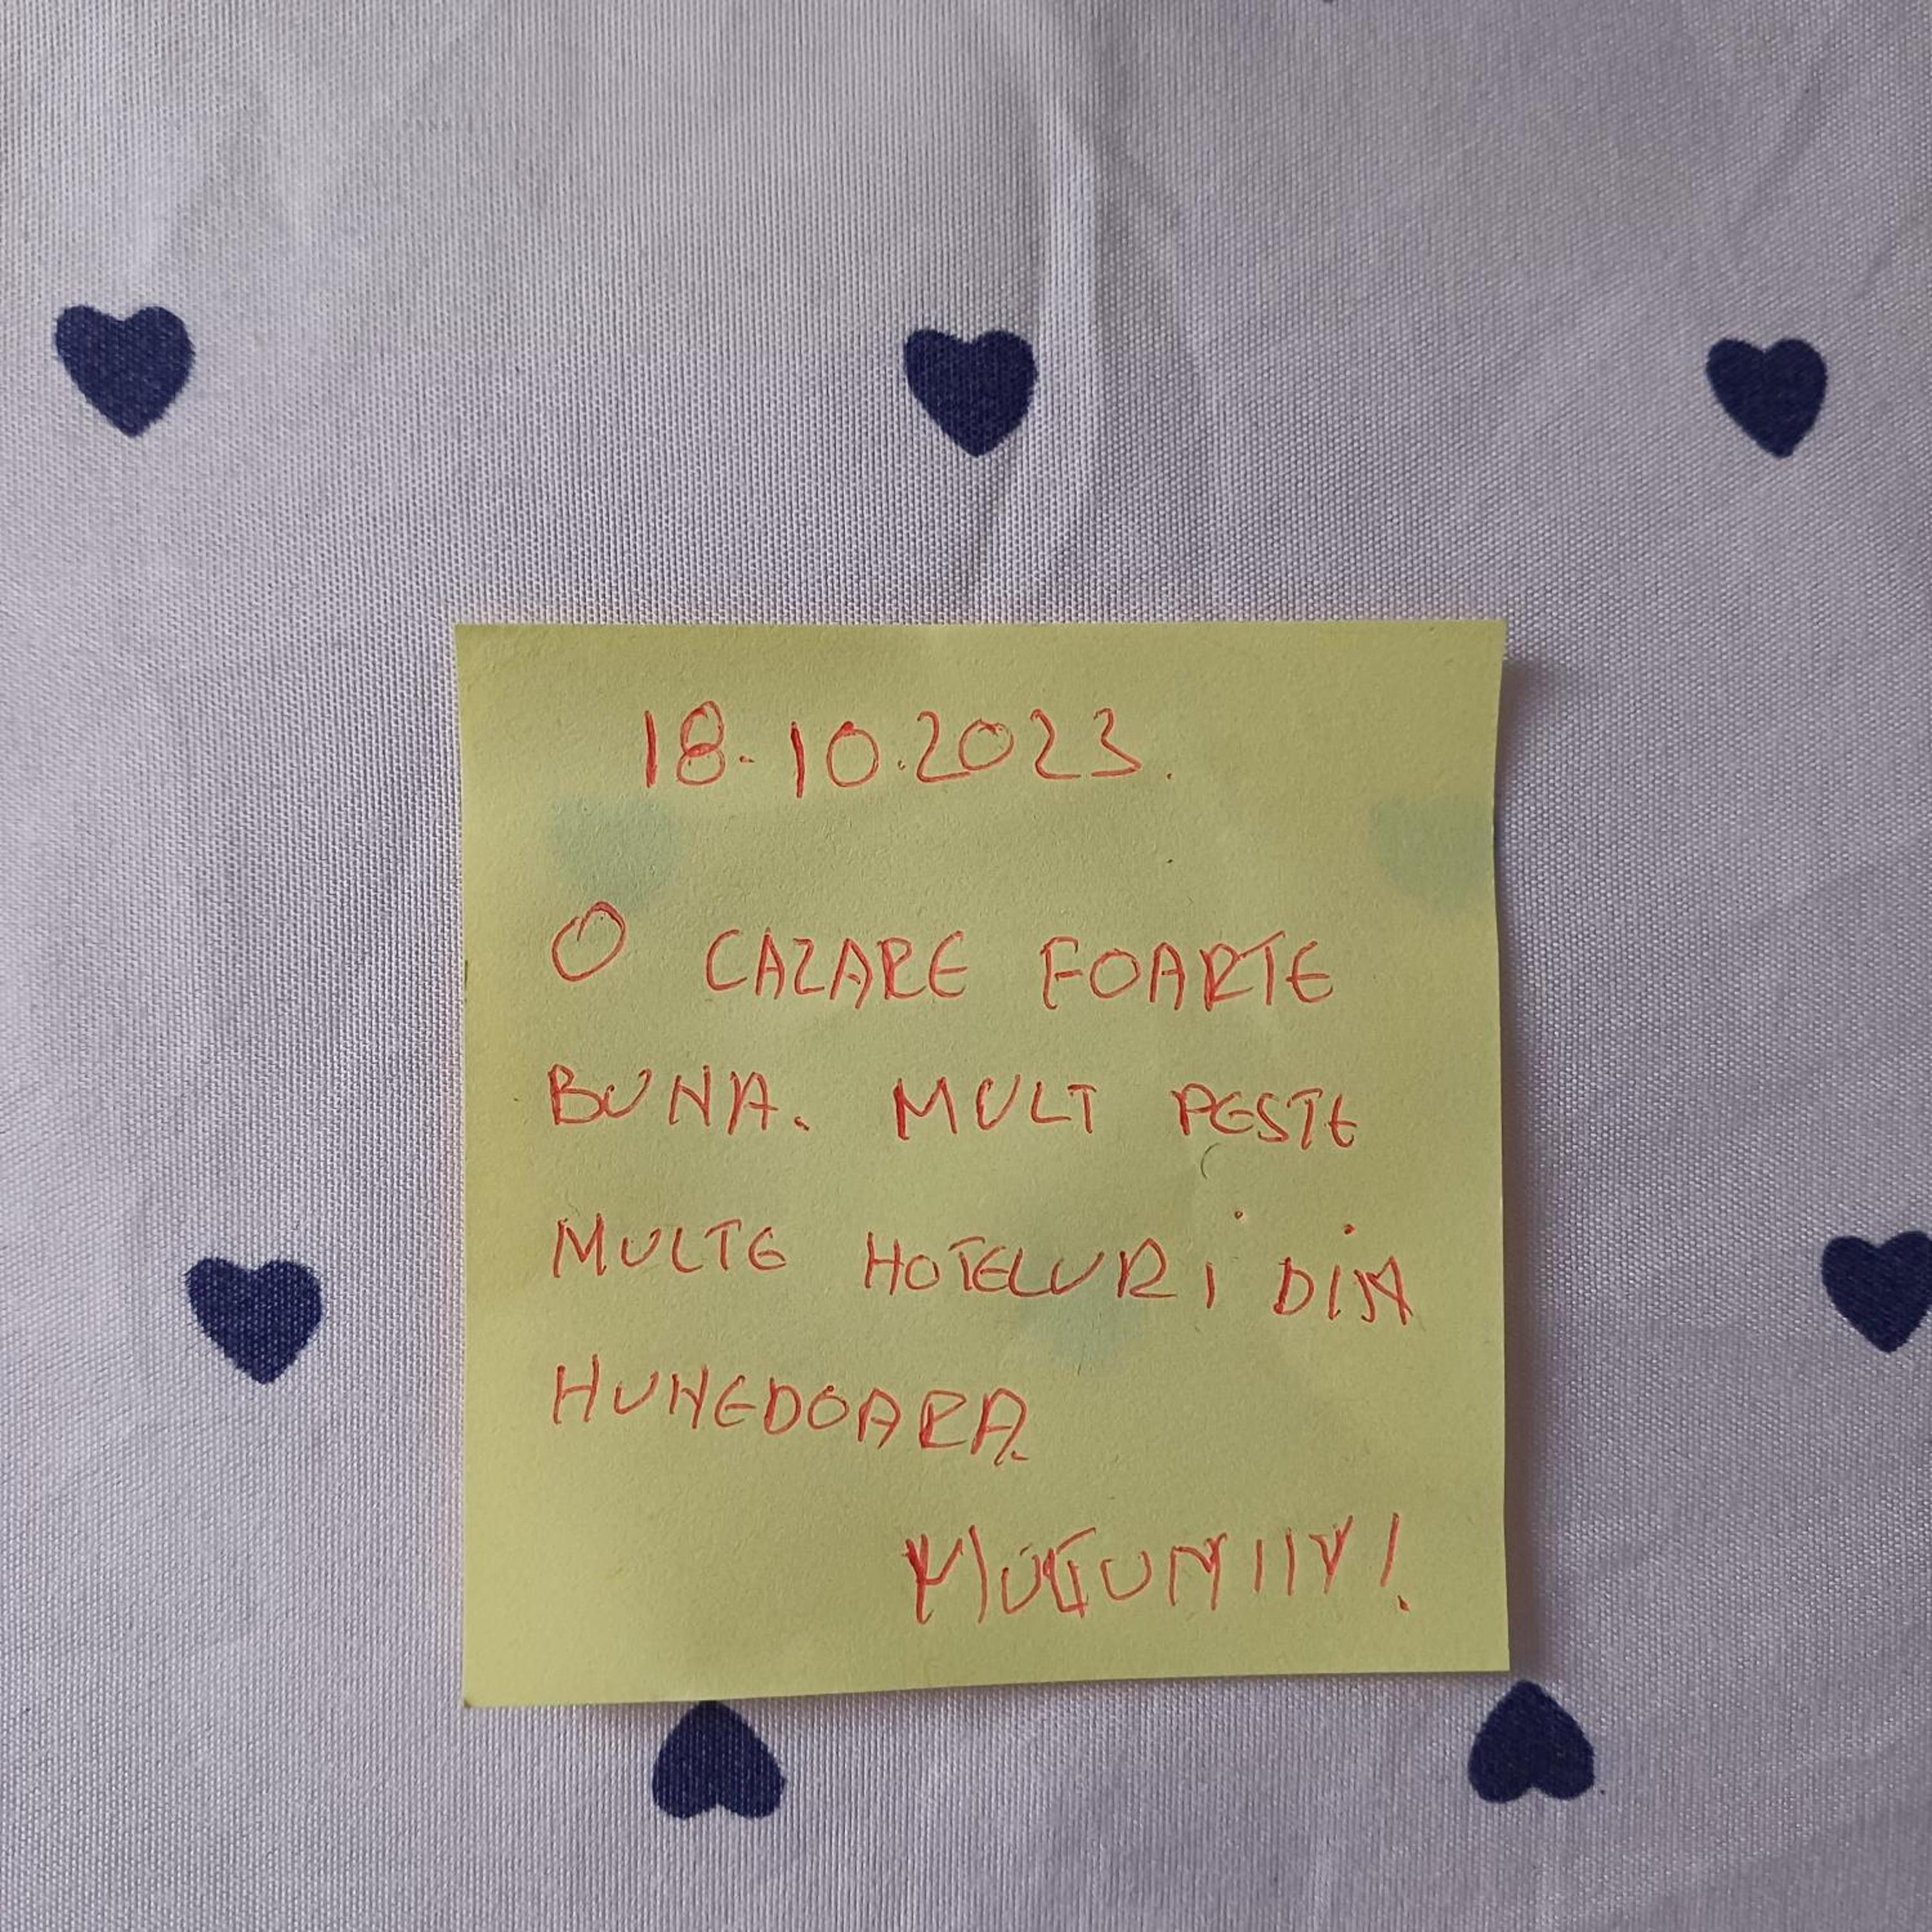 18.10.2023.
O CAZARE FOARTE
BUNA. MULT PESTE
MULTE HOTELURI DIN
HUNEDOARA.